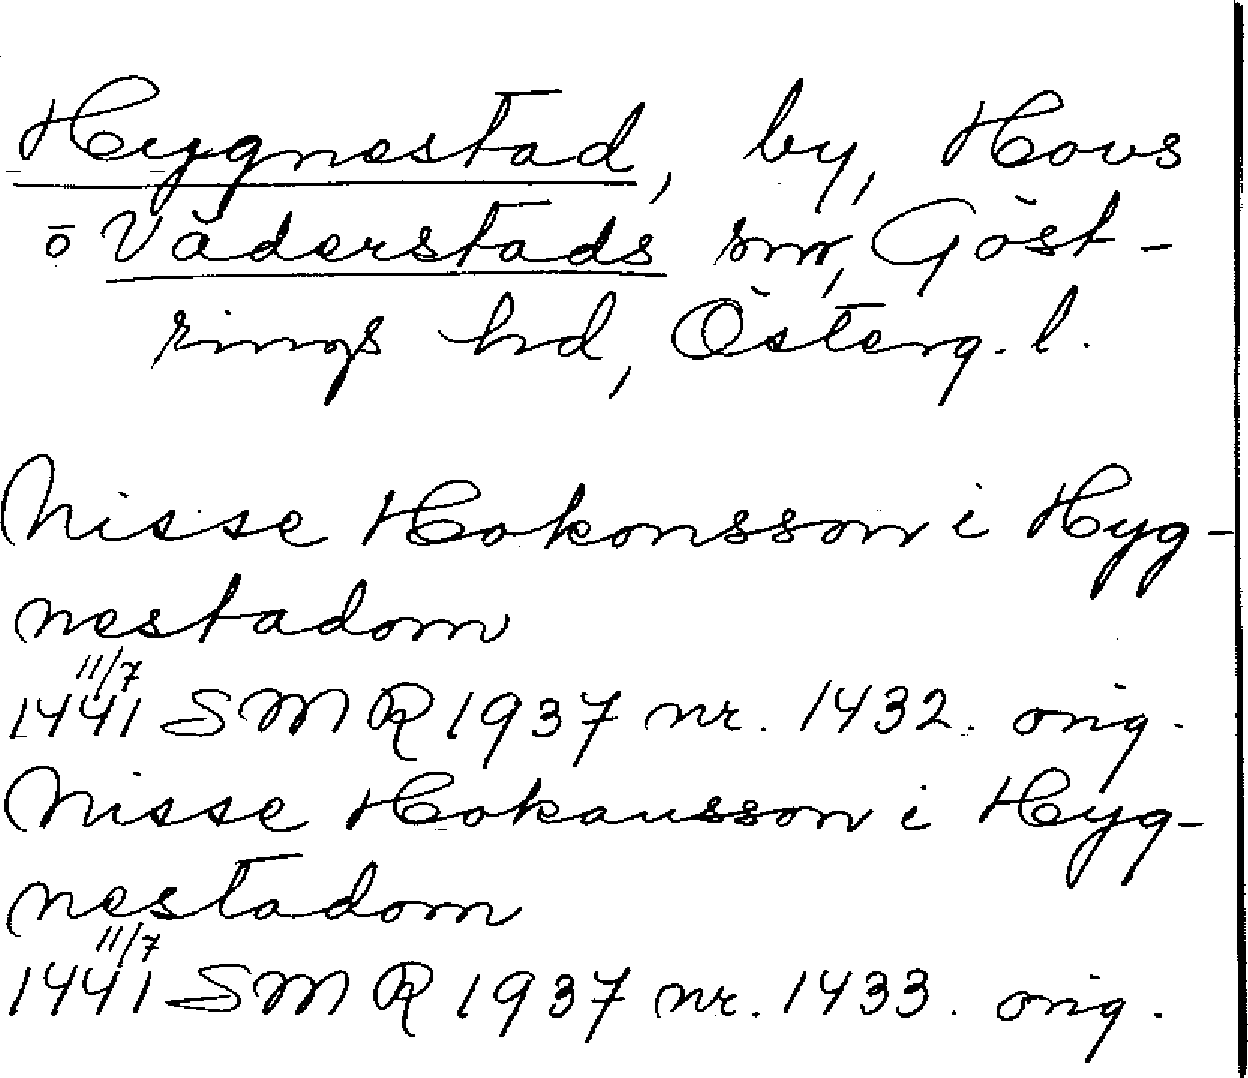 Hygnestad, by, Hovs
o Väderstads snr, Göst-
rings hd, Österg. l.
Nisse Hokonsson i Hyg-
nestadom
11/7
1441 SMR 1937 nr. 1432. orig.
Nisse Hokansson i Hyg-
nestadom
11/7
1441 SMR 1937 nr. 1433. orig.